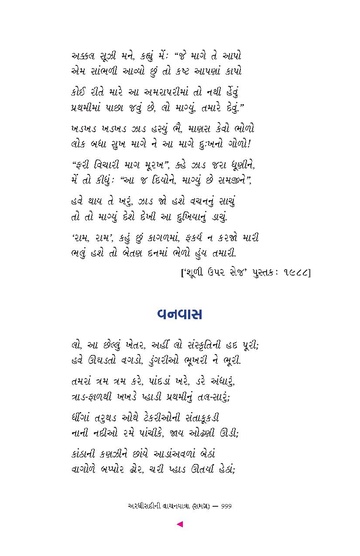 અક્કલ સૂઝી મને, કહ્યું મેંઃ “જે માગે તે આપો
એમ સાંભળી આવ્યો છું તો કષ્ટ આપણાં કાપો
કોઈ રીતે મારે આ અમરાપરીમાં તો નથી ર્‌હેવું
પ્રથમીમાં પાછા જવું છે, લો માગ્યું, તમારે દેવું.”
ખડખડ ખડખડ ઝાડ હસ્યું ભૈ, માણસ કેવો ભોળો
લોક બધા સુખ માગે ને આ માગે દુઃખનો ગોળો!
“ફરી વિચારી માગ મૂરખ”, ક્‌હે ઝાડ જરા ધૂણીને,
મેં તો કીધુંઃ “આ જ દિયોને, માગ્યું છે સમજીને”,
હવે થાય તે ખરું, ઝાડ જો હશે વચનનું સાચું
તો તો માગ્યું દેશે દેખી આ દુખિયાનું ડાચું.
‘રામ, રામ’, કહું છું કાગળમાં, ફકર્ય ન કરજો મારી
ભલું હશે તો બેતણ દનમાં ભેળો હુંય તમારી.
[‘શૂળી ઉપર સેજ’ પુસ્તકઃ ૧૯૮૮]
વનવાસ
લો, આ છેલ્લું ખેતર, અહીં લો સંસ્કૃતિની હદ પૂરી;
હવે ઊઘડતો વગડો, ડુંગરીઓ ભૂખરી ને ભૂરી.
તમરાં ત્રમ ત્રમ કરે, પાંદડાં ખરે, ડરે અંધારું,
ત્રાડ-ફાળથી ખખડે પ્હાડી પ્રથમીનું તલ-સારું;
ધીંગાં તરુથડ ઓથે ટેકરીઓની સંતાકૂકડી
નાની નદીઓ રમે પાંચીકે, જાય ઓઢણી ઊડી;
કાંઠાની કણઝીને છાંયે આડાંઅવળાં બેઠાં
વાગોળે બપ્પોર ઢોર, ચરી પ્હાડ ઊતર્યાં હેઠાં;
અરધીસદીની વાચનયાત્રા (સમગ્ર) — 999